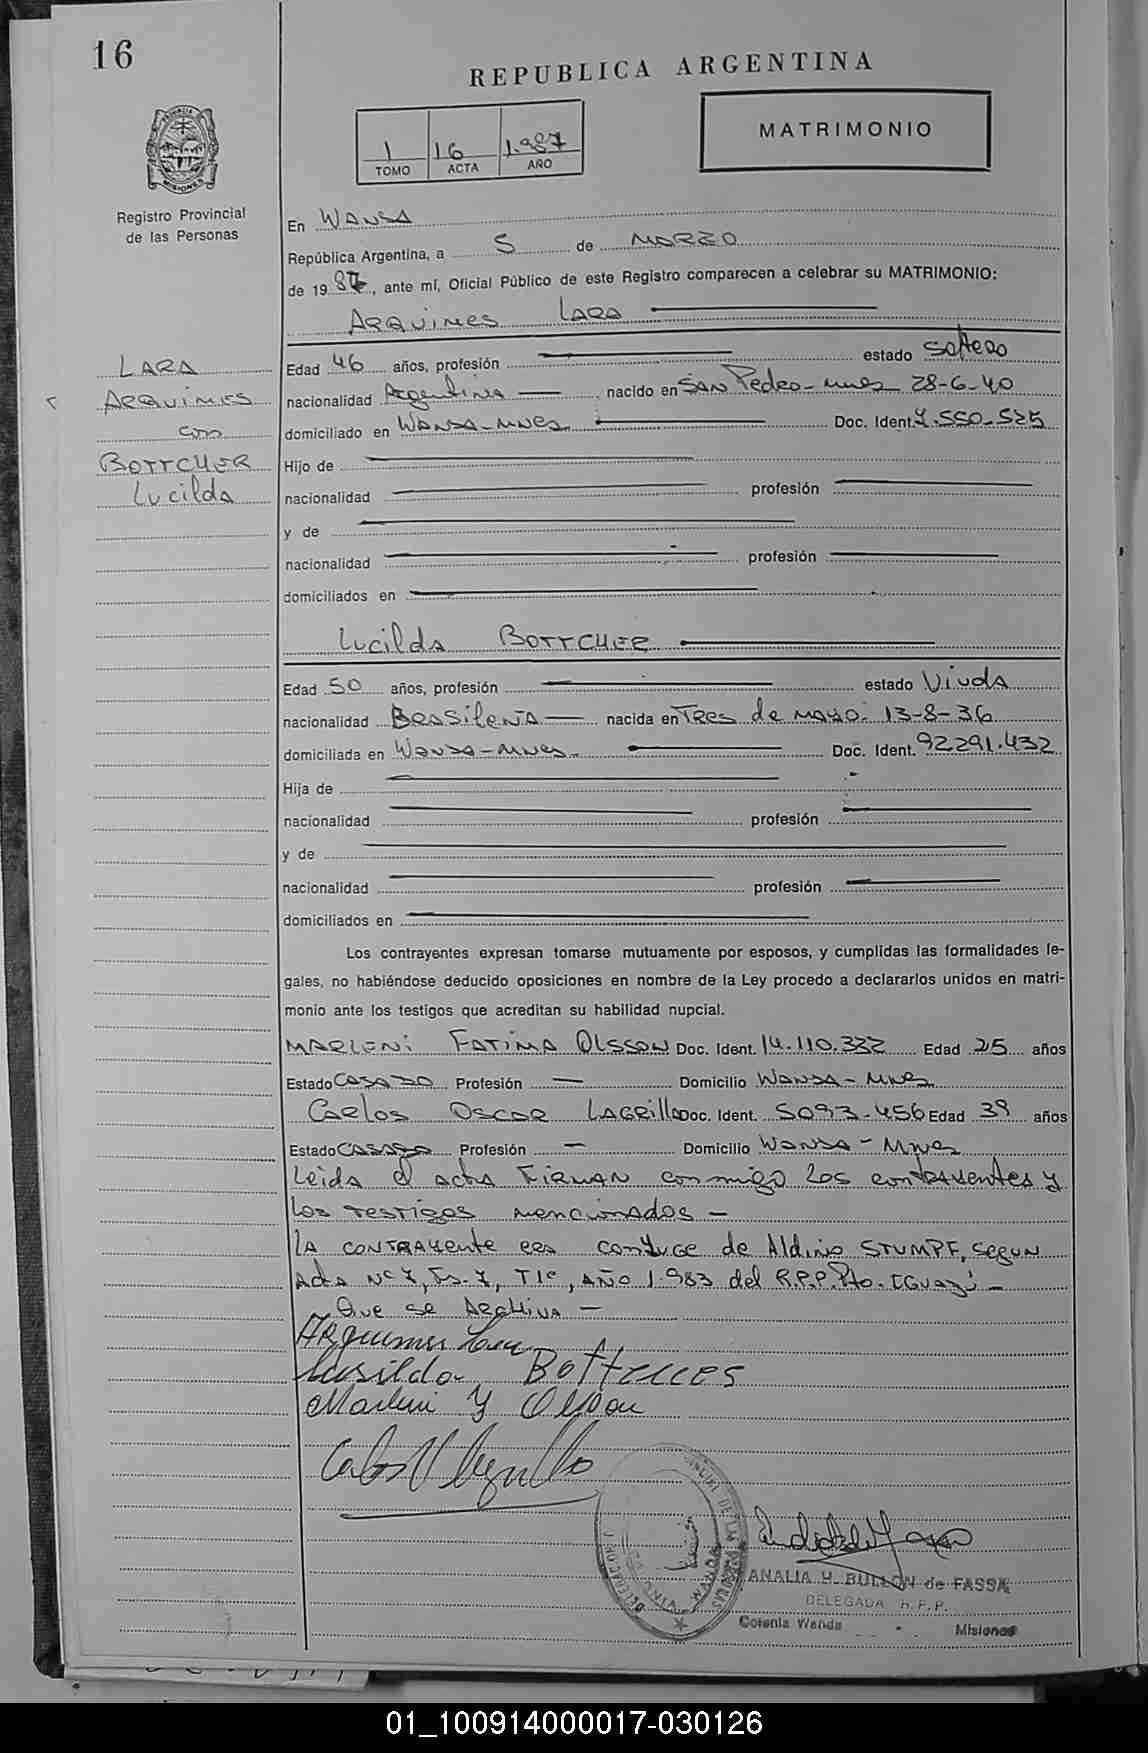 16
REPUBLICA ARGENTINA
1 16 1.987
TOMO ACTA AÑO
MATRIMONIO
Registro Provincial
de las Personas
En WANDA
República Argentina, a 5 de MARZO
de 1987, ante mí, Oficial Público de este Registro comparecen a celebrar su MATRIMONIO:
ARQUIMES LARA
LARA
ARQUIMES
con
BOTTCHER
Lucilda
Edad 46 años, profesión estado soltero
nacionalidad Argentina nacido en SAN Pedro-Mnes 28-6-40
domiciliado en WANDA-Mnes. Doc. Ident. 7.550.525
Hijo de
nacionalidad profesión
y de
nacionalidad profesión
domiciliados en
Lucilda BOTTCHER
Edad 50 años, profesión estado Viuda
nacionalidad BRASILEÑA nacida en TRES de MAYO. 13-8-36
domiciliada en WANDA-Mnes. Doc. Ident. 92291.432
Hija de
nacionalidad profesión
y de
nacionalidad profesión
domiciliados en
Los contrayentes expresan tomarse mutuamente por esposos, y cumplidas las formalidades le-
gales, no habiéndose deducido oposiciones en nombre de la Ley procedo a declararlos unidos en matri-
monio ante los testigos que acreditan su habilidad nupcial.
MARLENI FATIMA OLSSON Doc. Ident. 14.110.332 Edad 25 años
Estado CASADO Profesión — Domicilio WANDA-Mnes
Carlos OSCAR LAGRILLO Doc. Ident. 5093-456 Edad 39 años
Estado CASADO Profesión — Domicilio WANDA-Mnes
Leida el acta FIRMAN conmigo los contrayentes y
los testigos mencionados -
LA CONTRAYENTE era conyuge de Aldino STUMPF, segun
Acta Nº 7, Fs. 7, T1º, AÑO 1.983 del R.P.P. Pto. IGuazú -
Que se ARCHIVA -
Arquimes Lara
Marleni Y Olsson
ANALIA H. BULLON de FASSA
DELEGADA R.P.P.
Colonia Wanda Misiones
01_100914000017-030126